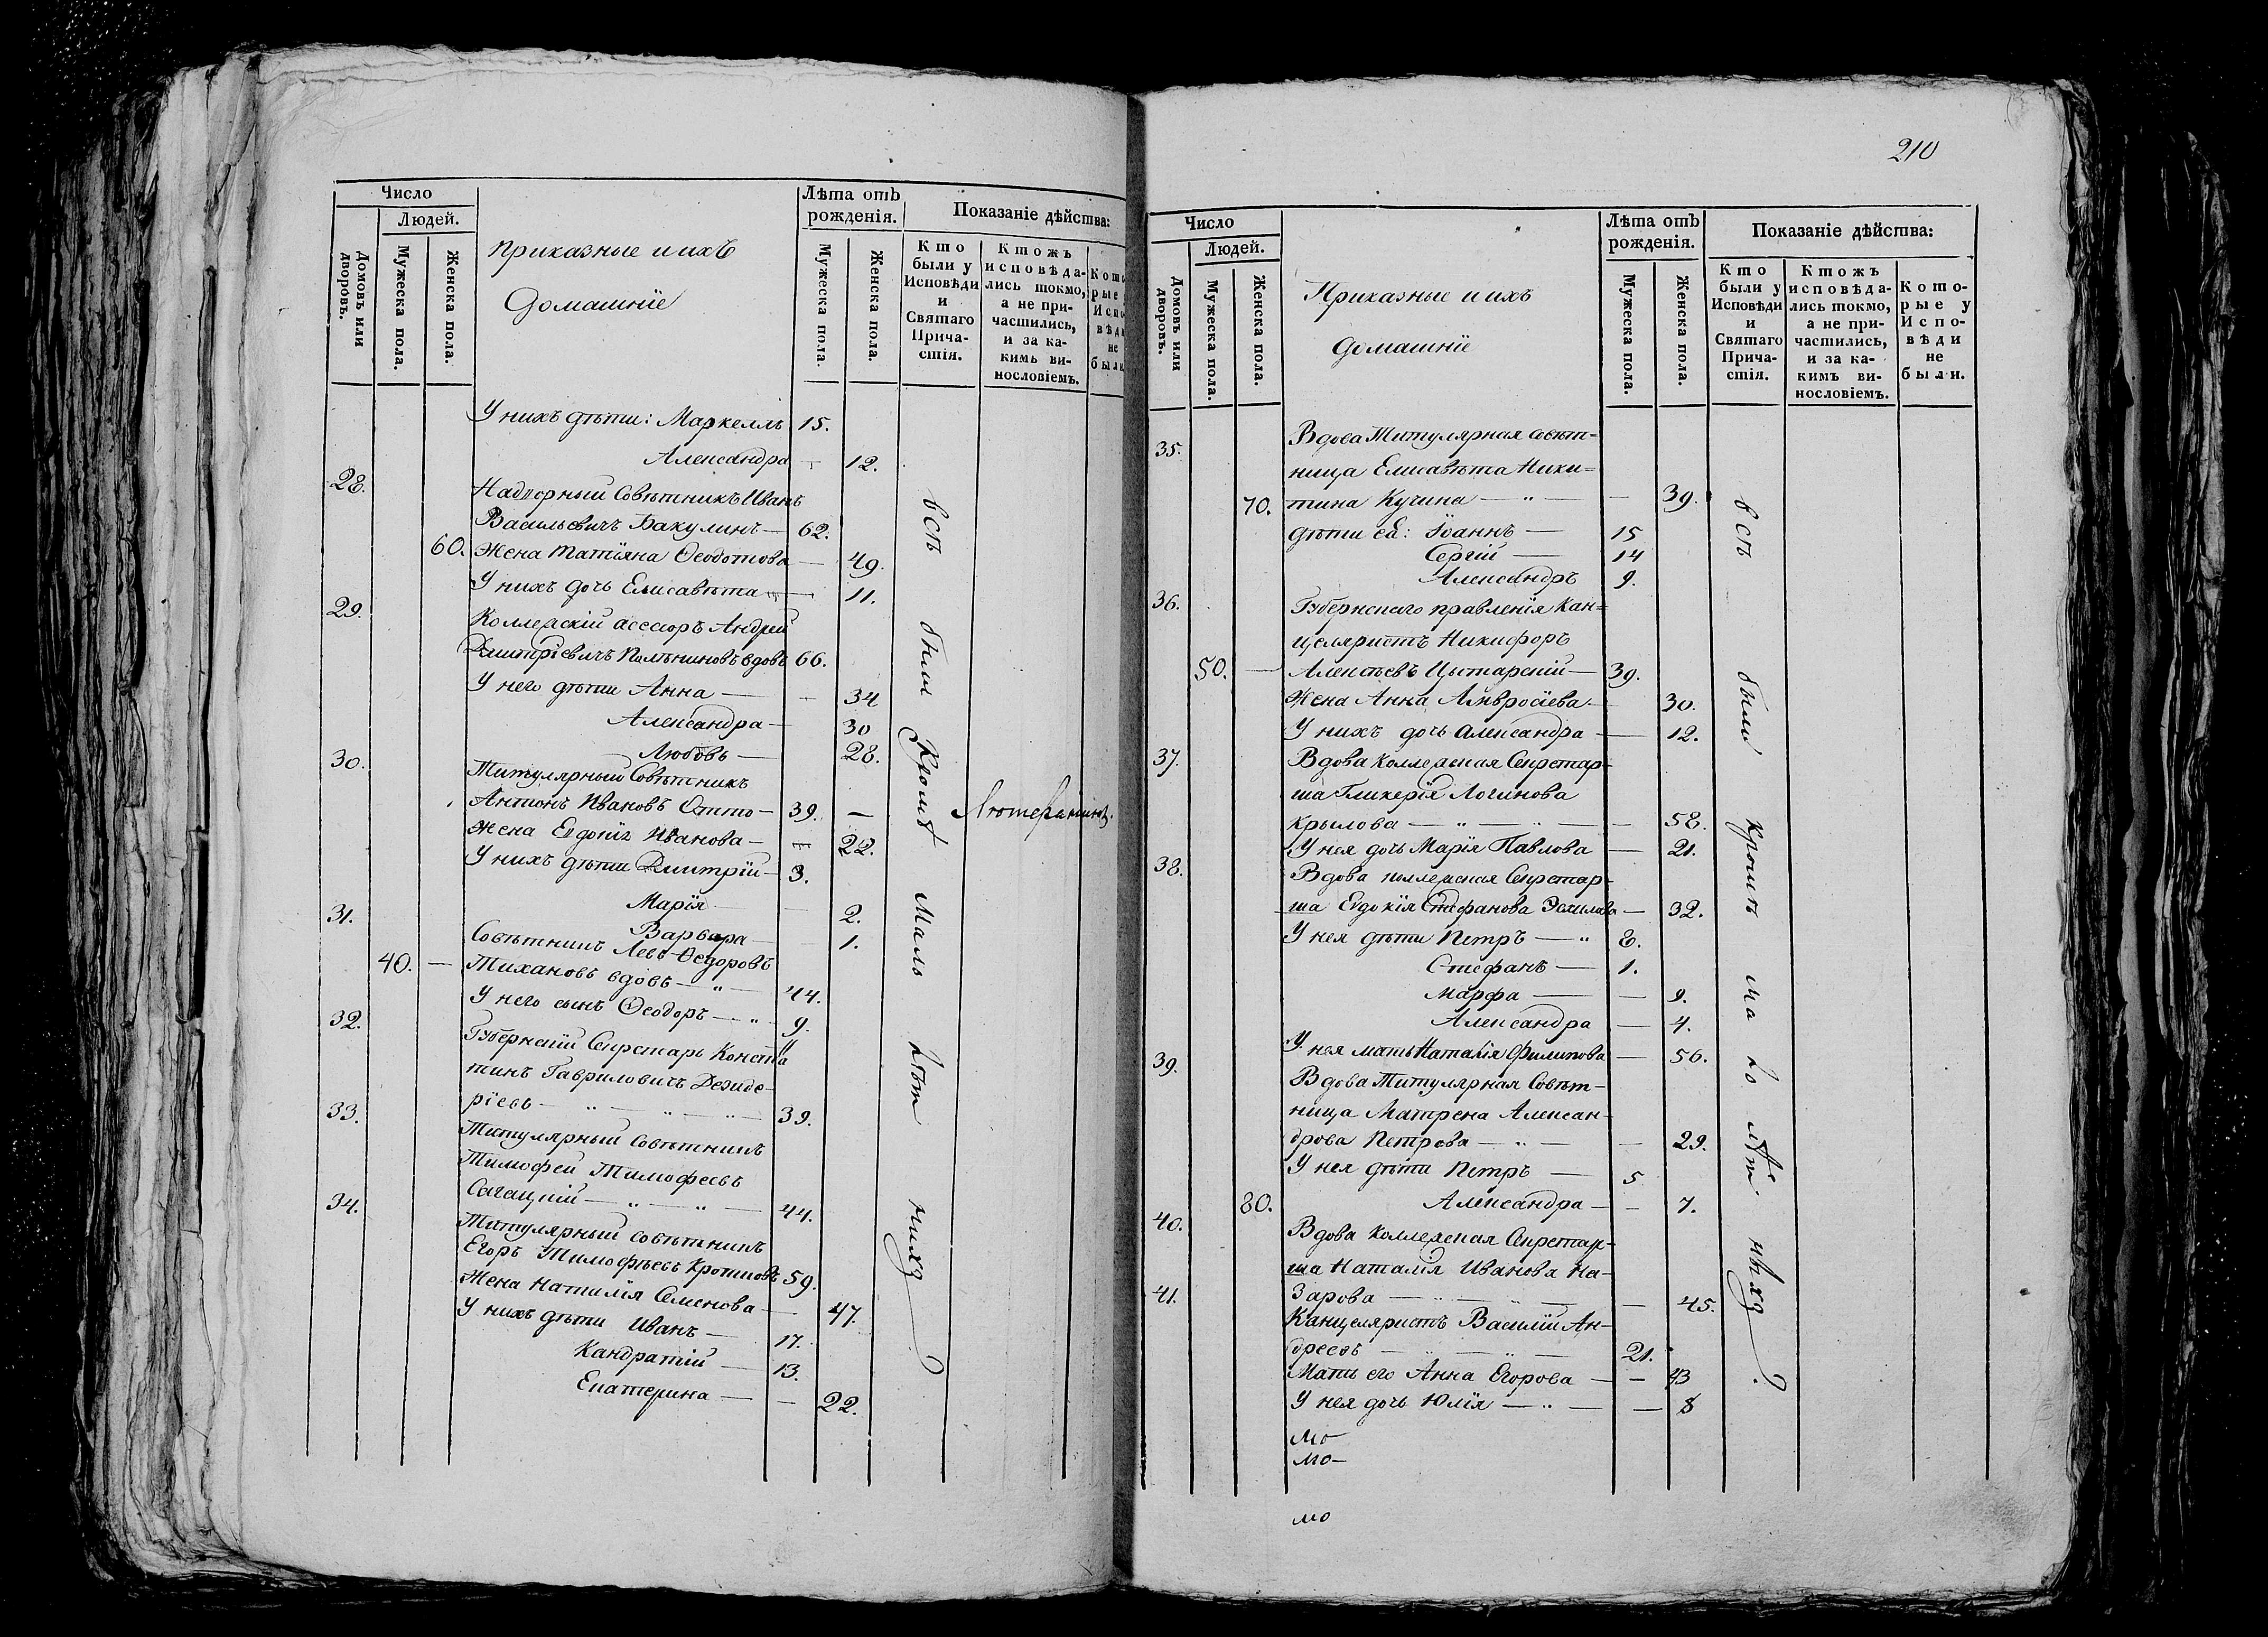 Число
Людей.
Домовъ или дворовъ.
Мужеска пола.
Женска пола.
Приказные и ихъ
домашнїе
Лѣта отъ рожденія.
Мужеска пола.
Женска пола.
Показаніе дѣйства:
Кто были у Исповѣди и Святаго Прича-стія.
Ктожъ исповѣда-лись токмо, а не при-частились, и за ка-кимъ ви-нословіемъ.
У нихъ дѣти: Маркеллъ 15.
Александра — 12.
28. Надворный Совѣтникъ Иванъ
Васильевичъ Бакулинъ — 62.
60. Жена Татїяна Ѳеодотова — 49.
У нихъ дочь Елисавѣта — 11.
29. Коллежскій ассесоръ Андрей
Дмитрїевичъ вдовъ 66.
У него дѣти Анна — — 34
Александра — 30
Любовь — 28.
30. Титулярный Совѣтникъ
Антонъ Ивановъ Отто — 39. — Лютеранинъ.
Жена Евдокїя Иванова — 22.
У нихъ дѣти Дмитрїй — 3.
Марїя — 2.
Варвара — 1.
31. Совѣтникъ Левъ Ѳедоровъ
40. — Тихановъ вдовъ — " — 44.
У него сынъ Ѳеодоръ — " 9.
32. Губернскій Секретарь Конста
тинъ Гавриловичъ Дезиде-
рїевъ — " — " — " — 39.
33. Титулярный Совѣтникъ
Тимофей Тимофеевъ
Сагацкій — " — " — 44.
34. Титулярный совѣтникъ
Егоръ Тимофѣевъ 59.
Жена Наталїя Семенова — 47.
У нихъ дѣти Иванъ — 17.
Кандратїй — 13.
Екатерина — — 22.
всѣ были кромѣ малолѣтнихъ
210
Число
Людей.
Домовъ или дворовъ.
Мужеска пола.
Женска пола.
Приказные и ихъ
домашнїе
Лѣта отъ рожденія.
Мужеска пола.
Женска пола.
Показаніе дѣйства:
Кто были у Исповѣди и Святаго Прича-стія.
Ктожъ исповѣда-лись токмо, а не при-частились, и за ка-кимъ ви-нословіемъ.
Кото-рые у Испо-вѣди не были.
35. Вдова Титулярная совѣт-
ница Елисавѣта Ники-
70. тина Кучина — " — — 39.
дѣти ея: Іоаннъ — 15
Сергій — 14
Александръ 9.
36. Губернскаго правленїя Кан-
целяристъ Никифоръ
50. — Алексѣевъ Цытарскій — 39.
Жена Анна Амвросїева — 30.
У нихъ дочь Александра — 12.
37. Вдова Коллежская Секретар-
ша Гликерїя Логинова
Крылова — " — " — — 58.
У нея дочь Марїя Павлова — 21.
38. Вдова коллежская Секретар-
ша Евдокїя Стефанова — 32.
У нея дѣти Петръ — " 8.
Стефанъ — 1.
Марфа — — 9.
Александра — 4.
У нея мать Наталїя Филипова — 56.
39. Вдова Титулярная Совѣт-
ница Матрена Алексан-
дрова Петрова — " — — 29.
У нея дѣти Петръ — 5
80. Александра — — 7.
40. Вдова Коллежская Секретар-
ша Наталїя Иванова На-
зарова — " — " — — 45.
41. Канцеляристъ Василїй Ан-
дреевъ — " — 21.
Мать его Анна Егорова — — 43
У нея дочь Юлїя — " — — 8
мо
мо—
мо
всѣ были кромѣ малолѣтнихъ